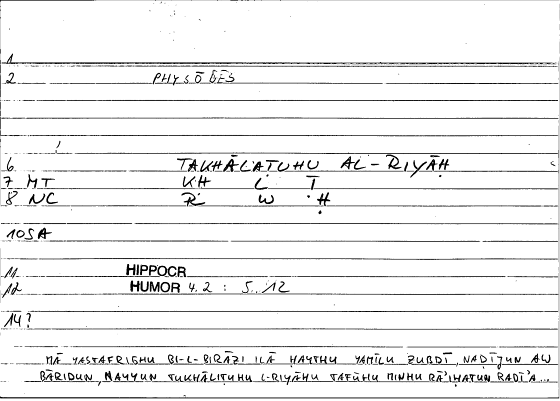 1
2 PHYSŌDĒS
6 TAKHĀLATUHU AL-RIYĀḤ
7 MT KH L Ṭ
8 NC R W Ḥ
10 SA
11 HIPPOCR
12 HUMOR 4.2 : 5.12
14 ?
MĀ YASTAFRIGHU BI-L-BIRĀZI ILĀ ḤAYTHU YAMĪLU ZUBDĪ, NAḌĪJUN AW
BĀRIDUN, NAYYUN TUKHĀLIṬUHU L-RIYĀḤU TAFŪḤU MINHU RĀ'IḤATUN RADĪ'A...